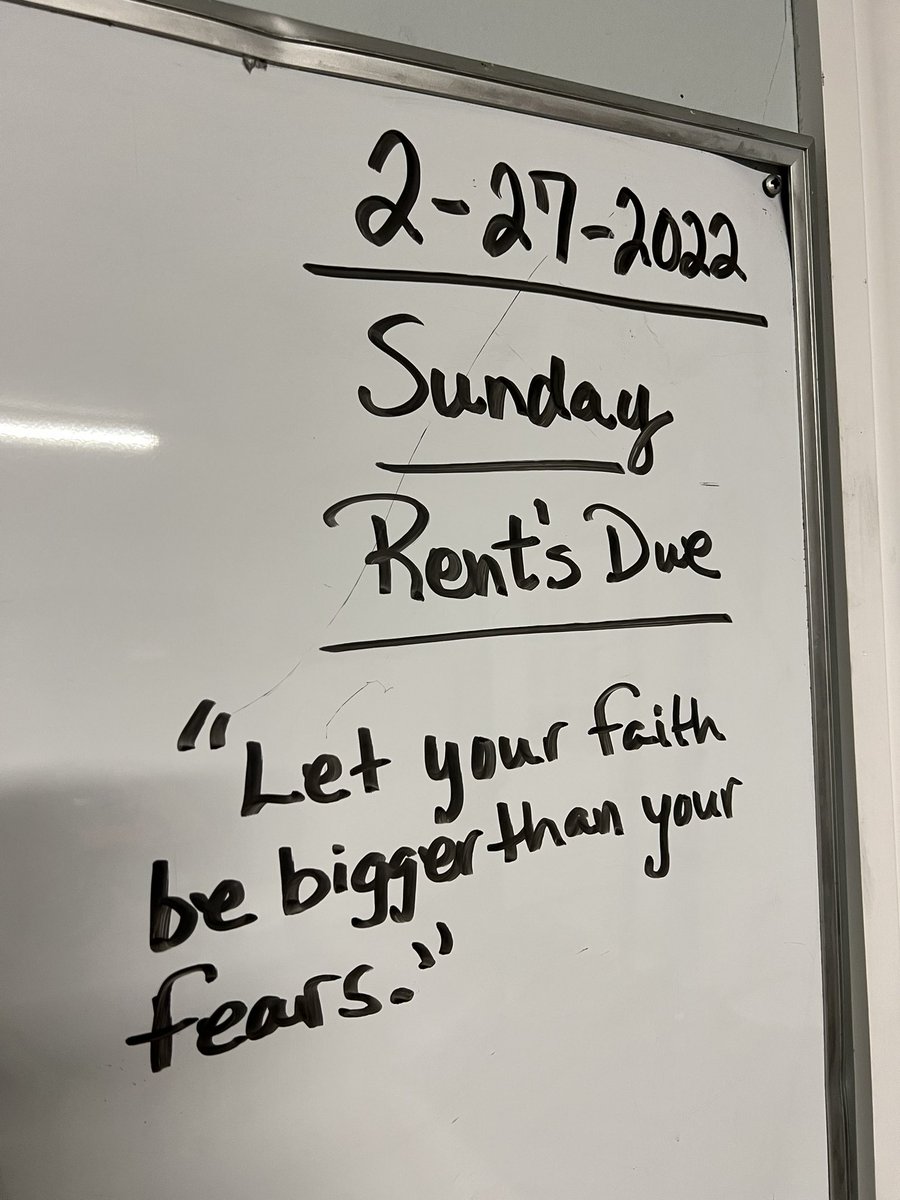 2-27-2022
Sunday
Rent's Due
"Let your faith
be bigger than your
fears."